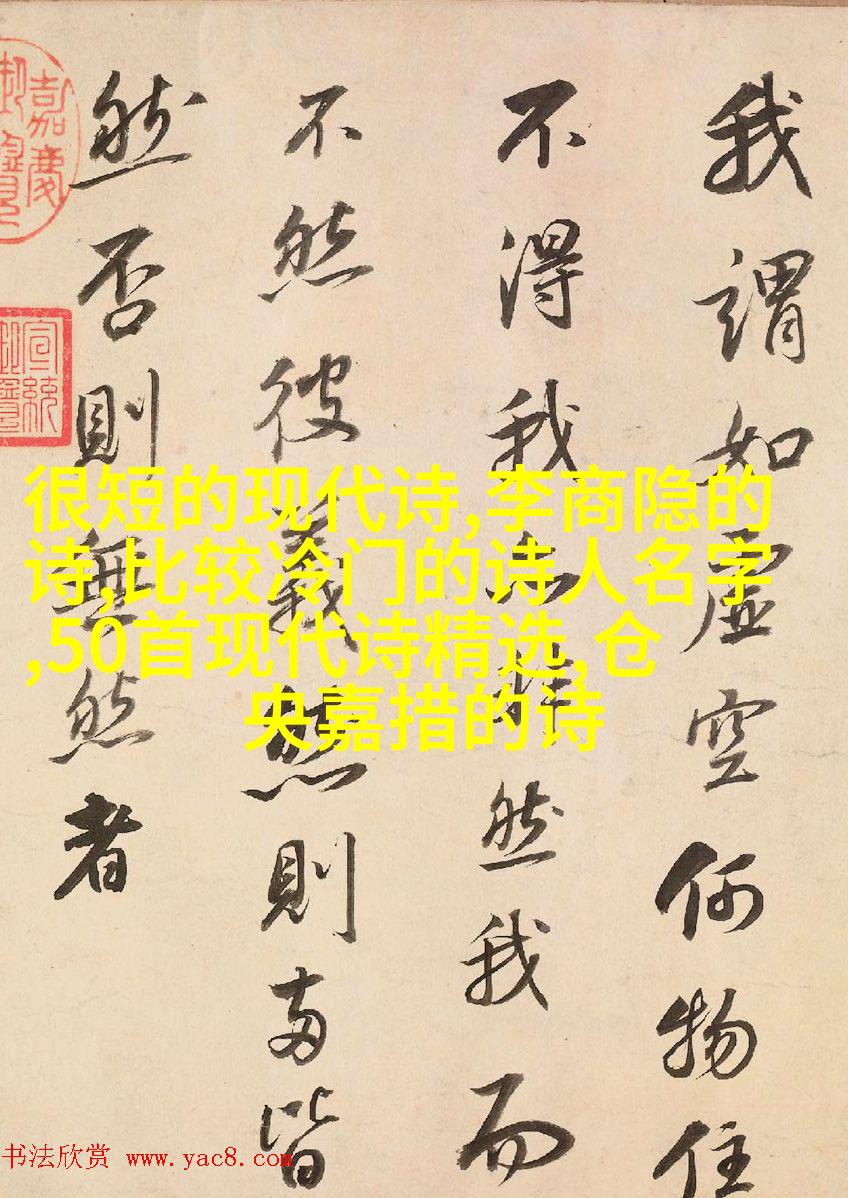 我謂如虛空何物住
不得我然我而
不然彼義然則兩皆
然否則無然者
嘉慶
宣統
很短的现代诗,李商隐的
诗,比较冷门的诗人名字
,50首现代诗精选,仓
央嘉措的诗
书法欣赏 www.yac8.com